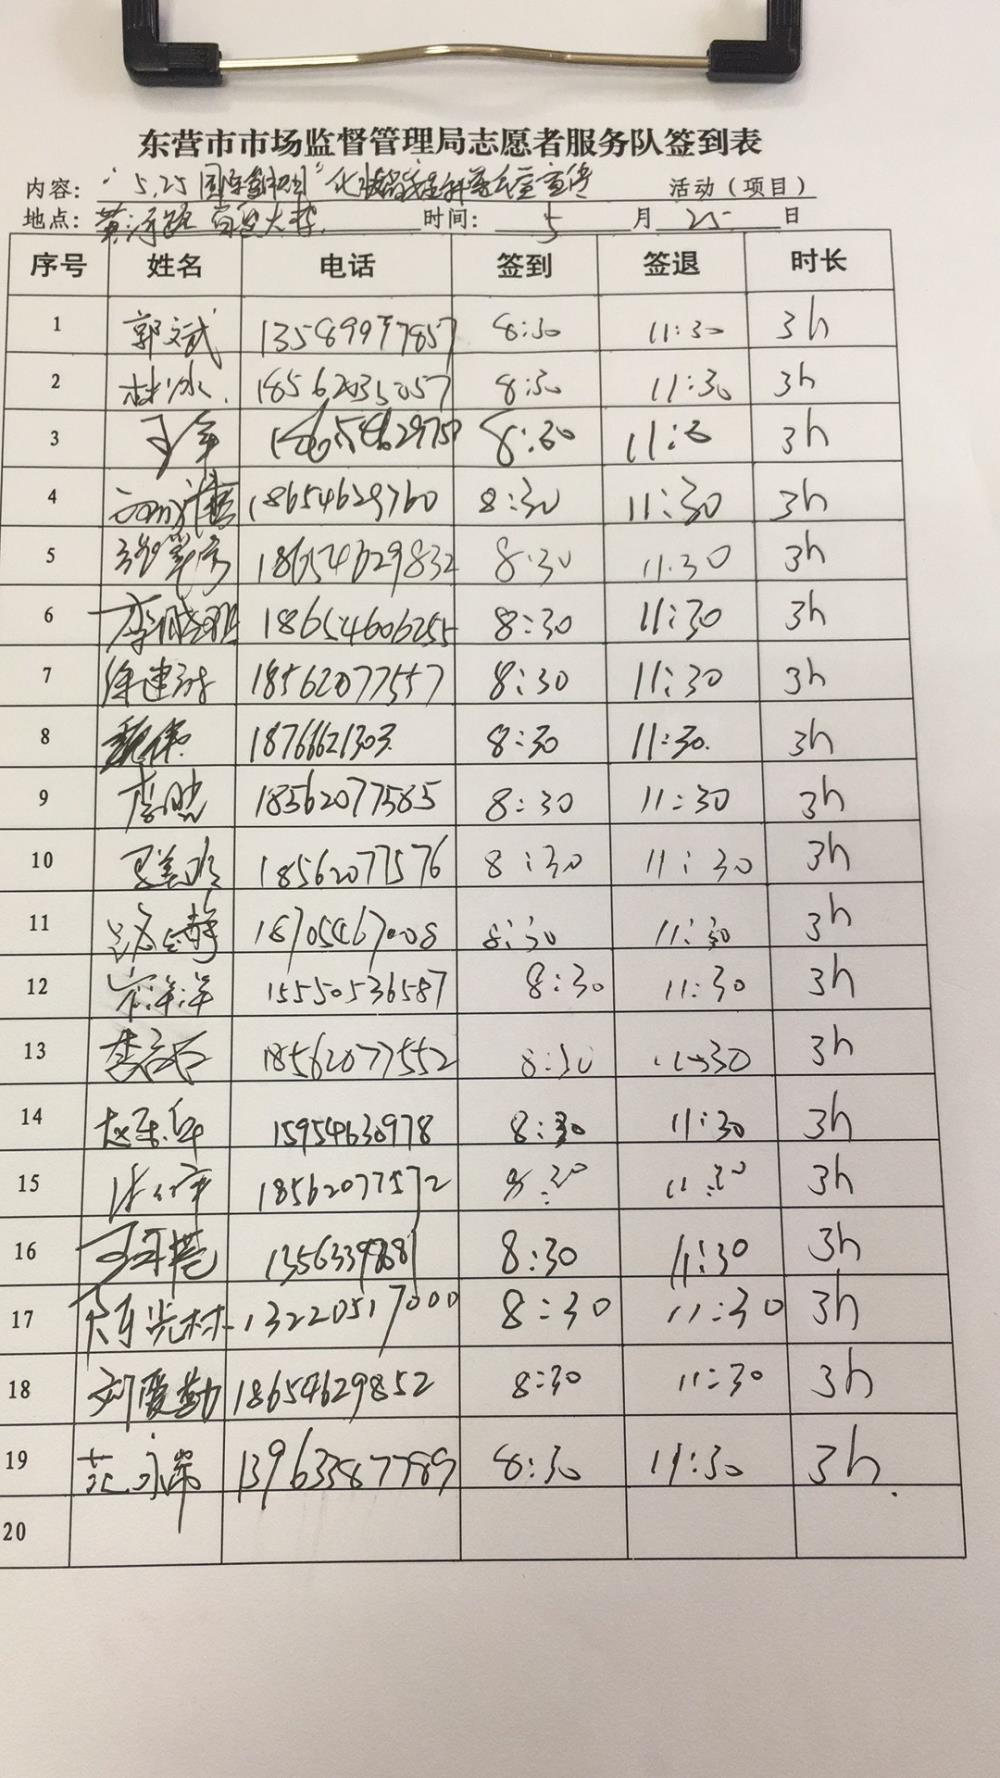 东营市市场监督管理局志愿者服务队签到表
内容: "5.25 宣传 活动(项目)
地点: 黄河路 大厦 时间: 5 月 25 日
序号 姓名 电话 签到 签退 时长
1 郭文斌 13589997857 8:30 11:30 3h
2 林冰 18562035057 8:30 11:30 3h
3 王军 8:30 3h
4 18654629760 8:30 11:30 3h
5 18654629832 8:30 11:30 3h
6 李晓明 18654606255 8:30 11:30 3h
7 徐建 18562077557 8:30 11:30 3h
8 魏伟 18766621303 8:30 11:30 3h
9 李晓 18562077585 8:30 11:30 3h
10 18562077576 8:30 11:30 3h
11 静 18705467008 8:30 11:30 3h
12 宋洋洋 15550536587 8:30 11:30 3h
13 李 18562077552 8:30 11:30 3h
14 赵 15954630978 8:30 11:30 3h
15 18562077572 8:30 11:30 3h
16 王 8:30 11:30 3h
17 光林 13220517000 8:30 11:30 3h
18 刘爱勤 18654629852 8:30 11:30 3h
19 范永岩 13963387789 8:30 11:30 3h
20